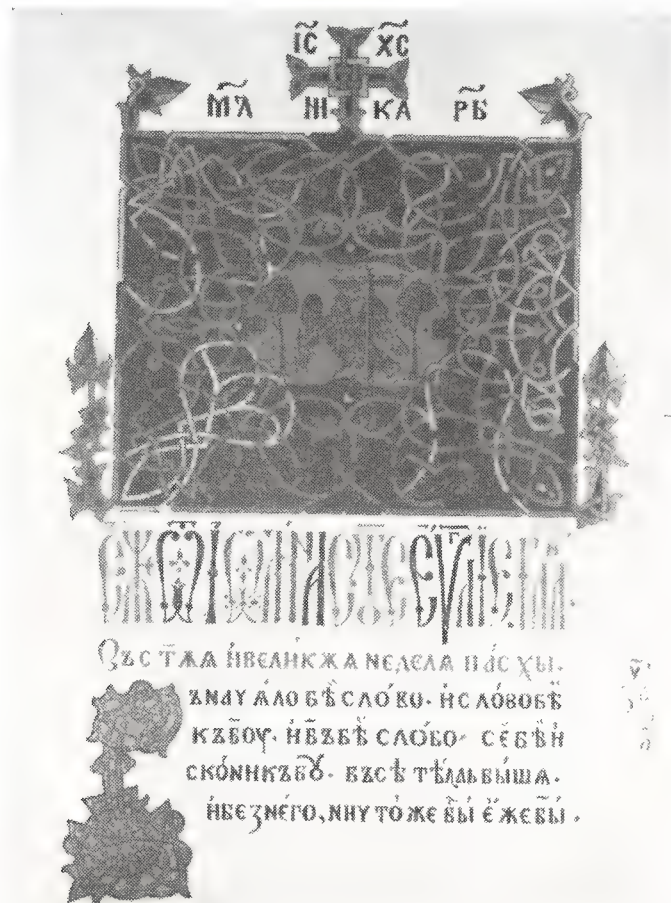 І҃С Х҃С
М҃Л НІ КА Р҃Б
ЕЖ Ѿ ІѠАННА СТ҃Е ЕѴ҃ЛІЕ
Въ ст҃ѫѧ и҆ великѫѧ неделѧ пасхы.
ъначѧло бѣ сло́во. и҆ сло́во бѣ
къб҃оу. и҆ б҃ъ бѣ сло́во. сеи бѣ и
ско́ни къ б҃ꙋ. въсѣ тѣ́мь бышѧ.
и҆ безнего, ничто́же бы́ е҆́же бы́.